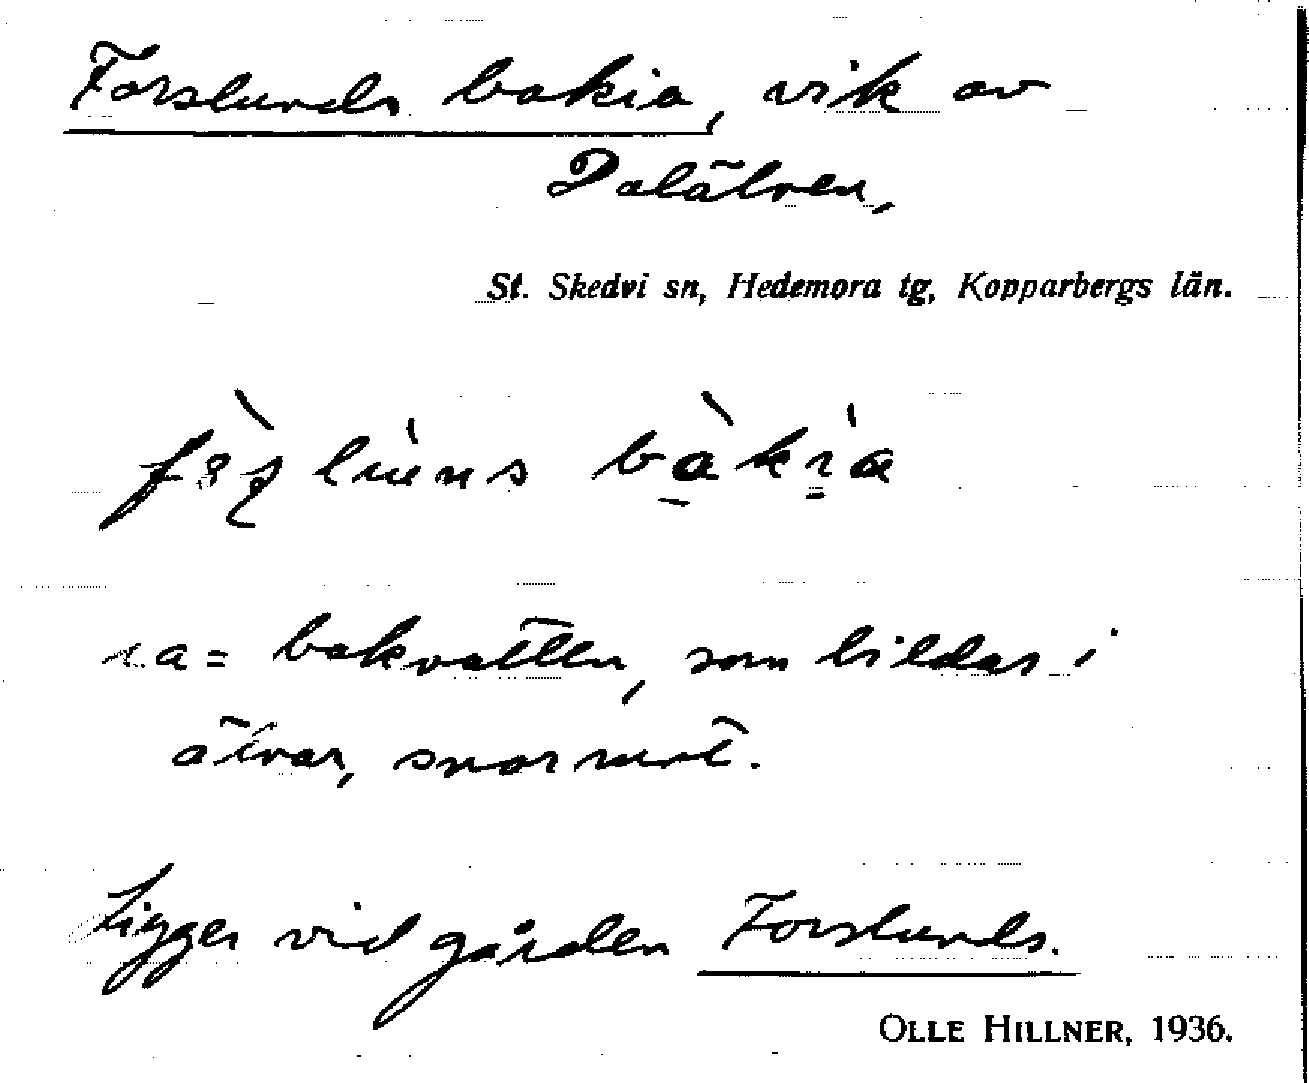 Forslunds bakia, vik av
Dalälven,
St. Skedvi sn, Hedemora tg, Kopparbergs län.
bàkìa
ia = bakvatten, som bildas i
älvar, snarmot.
Ligger vid gården Forslunds.
OLLE HILLNER, 1936.